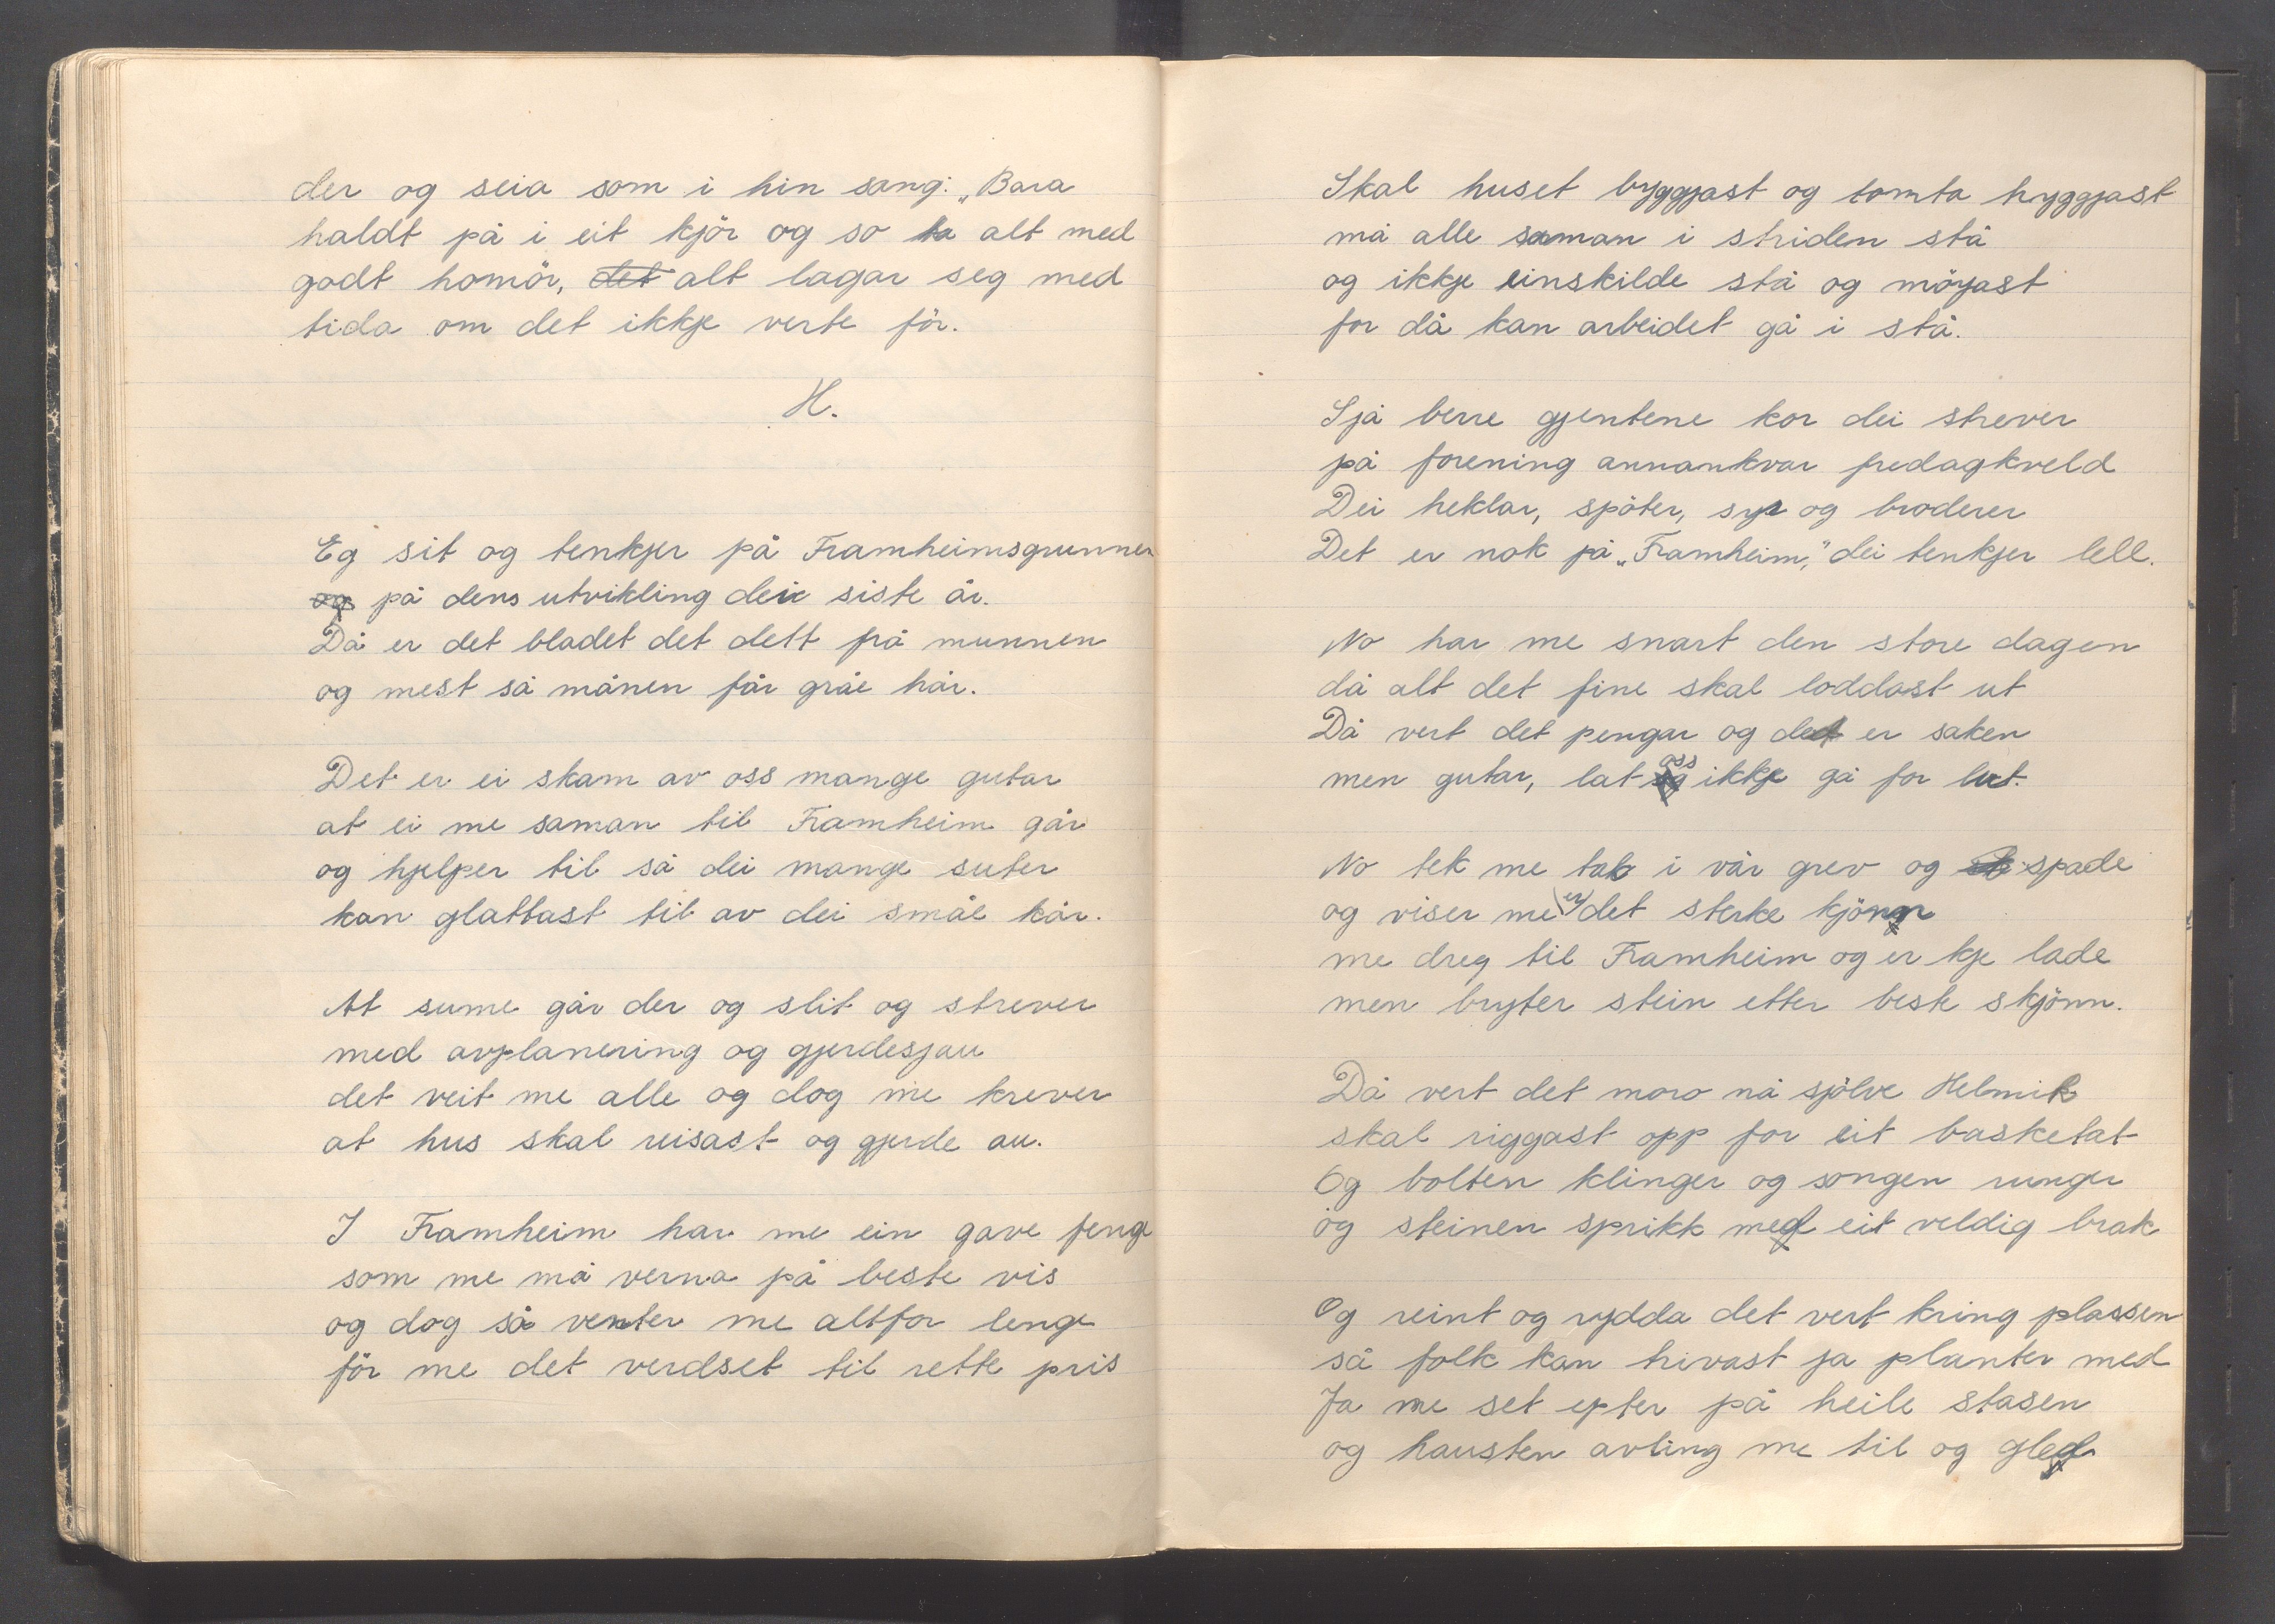 der og seia som i hin sang: „Bara
haldt på i eit kjör og so ta alt med
godt homör, det alt lagar seg med
tida om det ikkje verte för.
H.
Eg sit og tenkjer på Framheimsgrunnen
og på dens utvikling dei siste år.
Då er det bladet det dett frå munnen
og mest så månen får gråe hår.
Det er ei skam av oss mange gutar
at ei me saman til Framheim går
og hjelper til så dei mange suter
kan glattast til av dei småe kår.
At sume går der og slit og strever
med avplanering og gjerdesjau
det veit me alle og dog me krever
at hus skal reisast og gjerde au.
I Framheim har me ein gave fenge
som me må verna på beste vis
og dog så venter me altfor lenge
för me det verdset til rette pris
Skal huset byggjast og tomta hyggjast
må alle saman i striden stå
og ikkje einskilde stå og möyast
for då kan arbeidet gå i stå.
Sjå berre gjentene kor dei strever
på forening annankvar fredagkveld
Dei heklar, spöter, syr og broderer
Det er nok på „Framheim," dei tenkjer lell.
No har me snart den store dagen
då alt det fine skal loddast ut
Då vert det pengar og det er saken
men gutar, lat oss ikkje gå for lut.
No tek me tak i vår grev og spade
og viser me er det sterke kjönn
me dreg til Framheim og er kje lade
men bryter stein etter beste skjönn.
Då vert det moro nå sjölve Helmik
skal riggast opp for eit basketat
Og bolten klinger og songen runger
og steinen sprikk med eit veldig brak
Og reint og rydda det vert kring plassen
så folk kan hivast ja planter med
Ja me set epter på heile stasen
og hausten avling me til og gled